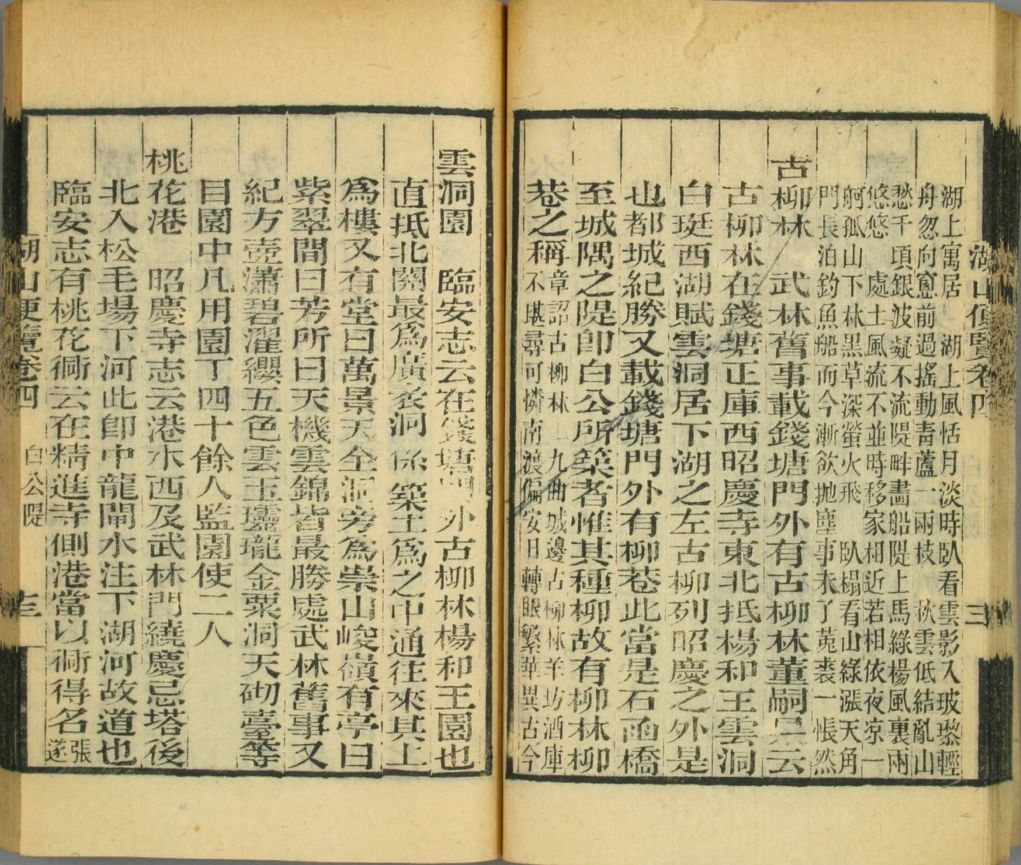 湖山便覽卷四
三
湖上寓居 湖上風恬月淡時臥看雲影入玻瓈輕
舟忽向窻前過搖動青蘆一兩枝 秋雲低結亂山
愁千頃銀波凝不流隄畔畵船隄上馬綠楊風裏兩
悠悠 處士風流不並時移家相近若相依夜凉一
舸孤山下林黑草深螢火飛 臥榻看山綠漲天角
門長泊釣魚船而今漸欲抛塵事未了菟裘一悵然
古柳林 武林舊事載錢塘門外有古柳林董嗣杲云
古柳林在錢塘正庫西昭慶寺東北抵楊和王雲洞
白珽西湖賦雲洞居下湖之左古柳列昭慶之外是
也都城紀勝又載錢塘門外有柳巷此當是石函橋
至城隅之隄卽白公所築者惟其種柳故有柳林柳
巷之稱
章詔古柳林 九曲城邊古柳林羊坊酒庫
不堪尋可憐南渡偏安日轉眼繁華異古今
雲洞園 臨安志云在錢塘門外古柳林楊和王園也
直抵北關最爲廣袤洞係築土爲之中通往來其上
爲樓又有堂曰萬景天全洞旁爲崇山峻嶺有亭曰
紫翠間曰芳所曰天機雲錦皆最勝處武林舊事又
紀方壺瀟碧濯纓五色雲玉瓏瓏金粟洞天砌臺等
目園中凡用園丁四十餘人監園使二人
桃花港 昭慶寺志云港水西及武林門繞慶忌塔後
北入松毛場下河此卽中龍閘水注下湖河故道也
臨安志有桃花衕云在精進寺側港當以衕得名
張
遂
湖山便覽卷四
白公隄